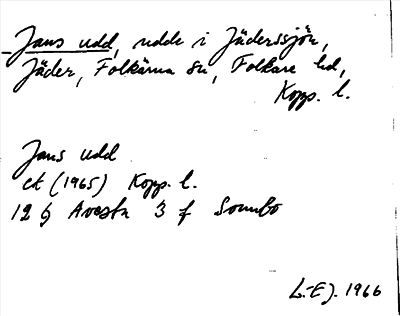 Jans udd, udde i Jäderssjön,
Jäder, Folkärna sn, Folkare hd,
Kopp. l.
Jans udd
ek (1965) Kopp. l.
12 G Avesta 3 f Sonnbo
L.-E. J. 1966